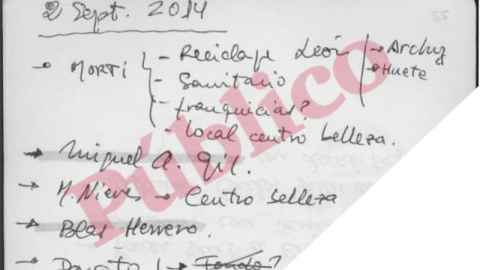 2 Sept. 2014
MORTI - Reciclaje León → Archy
- Sanitario → Huete
- franquicias?
- local centro belleza.
→ Miguel A. Gil.
→ M. Nieves → Centro belleza
→ Blas Herrero.
Público